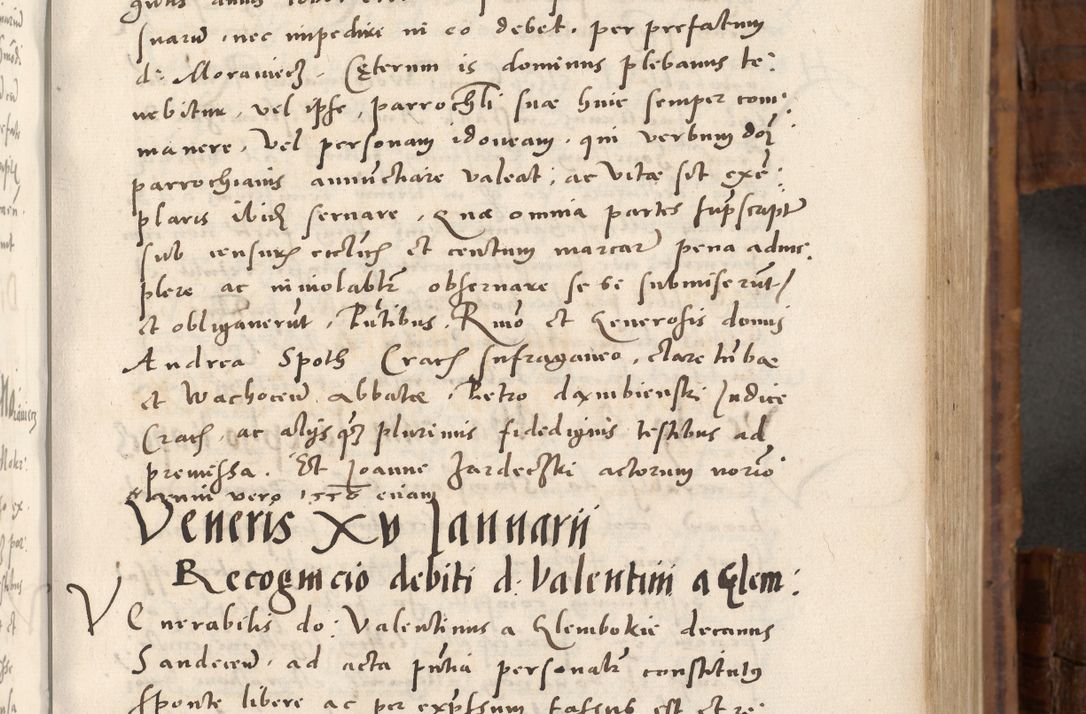 suarum, nec impedire in eo debet, per prefatum
d: Morawiecz. Cęterum is dominus plebanus te:
nebitur, vel ipse, parrochli suæ huic semper com:
manere, vel personam idoneam, qui verbum doi
parrochianis annunctiare valeat, ac vitæ sit exē:
plaris ibid servare, Quæ omnia partes supscript
sub censuris ecclicis et centum marcar pena adim:
plere ac inviolabtr observare se se submiserūt
et obligaverūt, Pūtibus, Rmo et Generosis domis
Andrea Spoth Crac suffraganeo, claretūbæ
et Wachocen Abbatæ, Petro dąmbienski Judice
Crac, ac alijs qz plurimis fidedignis testibus ad
premissa. Et Joanne Jardeczki actorum norio
vero 1556 eciam
Veneris XV Jannuarii
Recognicio debiti d. Valentini a Glem:
Venerabilis do: Valentinus a Glembokie decanus
Sandecen, ad acta pūtia personaltr constitutus
sponte libere ac per expssum fassus est et re: